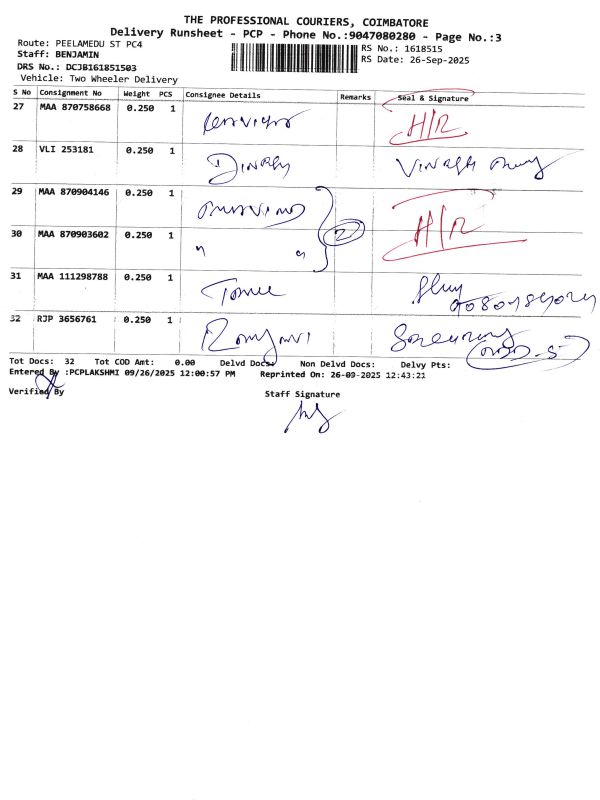 THE PROFESSIONAL COURIERS, COIMBATORE
Delivery Runsheet - PCP - Phone No.:9047080280 - Page No.:3
Route: PEELAMEDU ST PC4
RS No.: 1618515
Staff: BENJAMIN
RS Date: 26-Sep-2025
DRS No.: DCJB161851503
Vehicle: Two Wheeler Delivery
S No Consignment No Weight PCS Consignee Details Remarks Seal & Signature
27 MAA 870758668 0.250 1 H/R
28 VLI 253181 0.250 1 DINESH
29 MAA 870904146 0.250 1 H/R
2
30 MAA 870903602 0.250 1 " "
31 MAA 111298788 0.250 1
32 RJP 3656761 0.250 1
Tot Docs: 32 Tot COD Amt: 0.00 Delvd Docs: Non Delvd Docs: Delvy Pts:
Entered By :PCPLAKSHMI 09/26/2025 12:00:57 PM Reprinted On: 26-09-2025 12:43:21
Verified By
Staff Signature